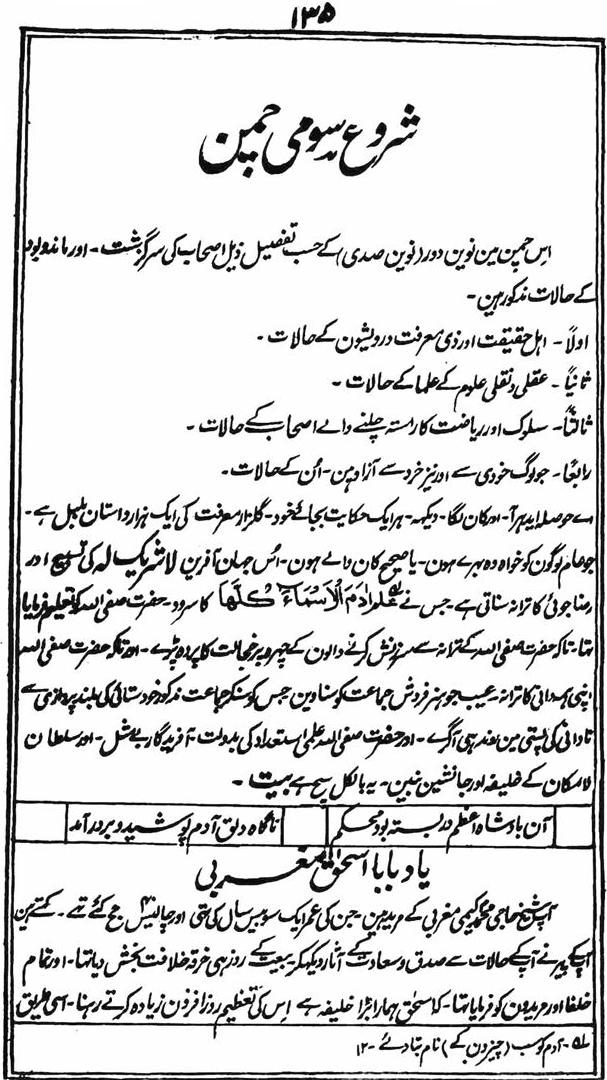 ۱۳۵
شروع سومی چمن
اس چمن مین نوین دور (نوین صدی) کے حسب تفصیل ذیل اصحاب کی سرگزشت - اور ماند و بود
کے حالات مذکور ہین -
اولاً - اہل حقیقت اور ذی معرفت درویشون کے حالات -
ثانیاً - عقلی و نقلی علوم کے علما کے حالات -
ثالثاً - سلوک اور ریاضت کا راستہ چلنے والے اصحاب کے حالات -
رابعاً - جو لوگ خودی سے اور نیز خرد سے آزاد ہین - اُن کے حالات -
اے حوصلہ ایدہر آ - اور کان لگا - دیکہہ - ہر ایک حکایت بجائے خود - گلزار معرفت کی ایک ہزار داستان بلبل ہے -
جو عام لوگون کو خواہ وہ بہرے ہون - یا صحیح کان والے ہون - اُس جہان آفرین لا شریک لہ کی تسبیح اور
رضا جوئی کا ترانہ سناتی ہے - جس نے علم آدم الاسماء کلھا کا سرود - حضرت صفی اللہ کو تعلیم فرمایا
تہا - تاکہ حضرت صفی اللہ کے ترانہ سے سرزنش کرنے والون کے چہرو پر خجالت کا پردہ پڑے - اور تاکہ حضرت صفی اللہ
اپنی ہمہ دانی کا ترانہ - عیب جو ہنر فروش جماعت کو سناوین جس کو سنکر جماعت مذکور خودستائی کی بلند پروازی سے
نادانی کی پستی مین اوندہی آگرے - اور حضرت صفی اللہ علمی استعداد کی بدولت - آفریدگار بے مثل - اور سلطان
لامکان کے خلیفہ اور جانشین بنین - یہ بالکل سچ ہے بیت -
آن بادشاہ اعظم در بستہ بود محکم ناگاہ دلق آدم پوشید و بر در آمد
یاد بابا اسحٰق مغربی
آپ شیخ حاجی محمد کیمی مغربی کے مرید ہین - جن کی عمر ایک سو بیس سال کی تہی اور چالیس حج کئے تہے - کہتے ہین
آپ کے پیر نے آپ کے حالات سے صدق و سعادت کے آثار دیکہکر - بیعت کے روز ہی خرقہ خلافت بخش دیا تہا - اور تمام
خلفا اور مریدون کو فرمایا تہا - کہ اسحٰق ہمارا بڑا خلیفہ ہے اس کی تعظیم روز افزون زیادہ کرتے رہنا - اسی طریق
لہ - آدم کو سب (چیزون کے) نام بتا دئے - ۱۲